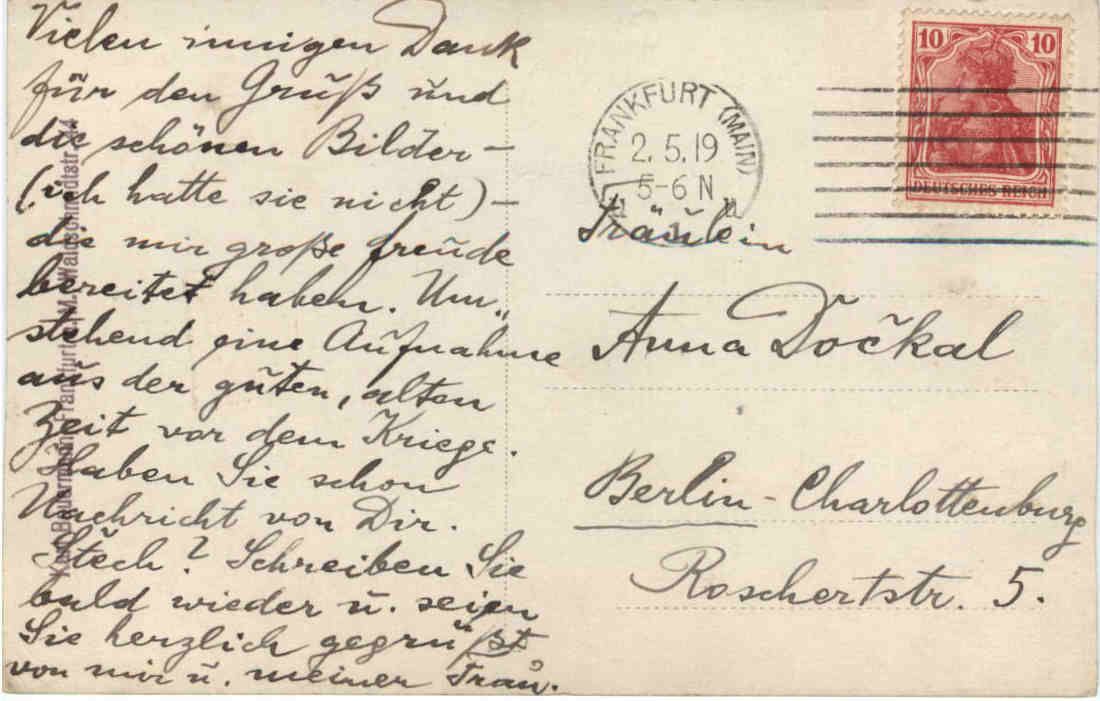 Vielen innigen Dank
für den Gruß und
die schönen Bilder –
(ich hatte sie nicht) –
die mir große Freude
bereitet haben. Um„
stehend eine Aufnahme
aus der guten, alten
Zeit vor dem Kriege.
Haben Sie schon
Nachricht von Dir.
Stech? Schreiben Sie
bald wieder u. seien
Sie herzlich gegrüßt
von mir u. meiner Frau.
FRANKFURT (MAIN)
2.5.19
5-6 N
10 10
DEUTSCHES REICH
Fräulein
Anna Dočkal
Berlin-Charlottenburg
Roschertstr. 5.
Frankfurt a. M.